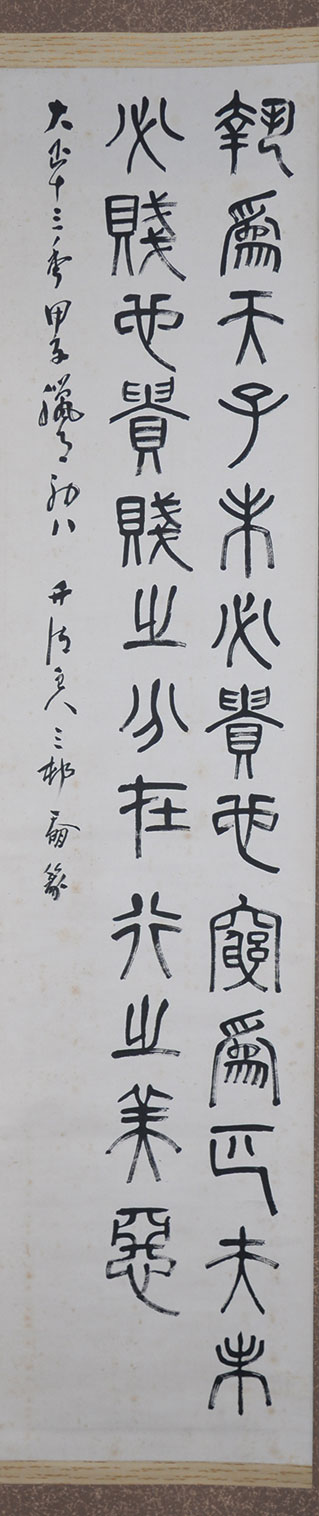 埶爲天子未必貴也窮爲匹夫未
必賤也貴賤之分在行之美惡
大正十三年甲子臘月初八 人三邨篆